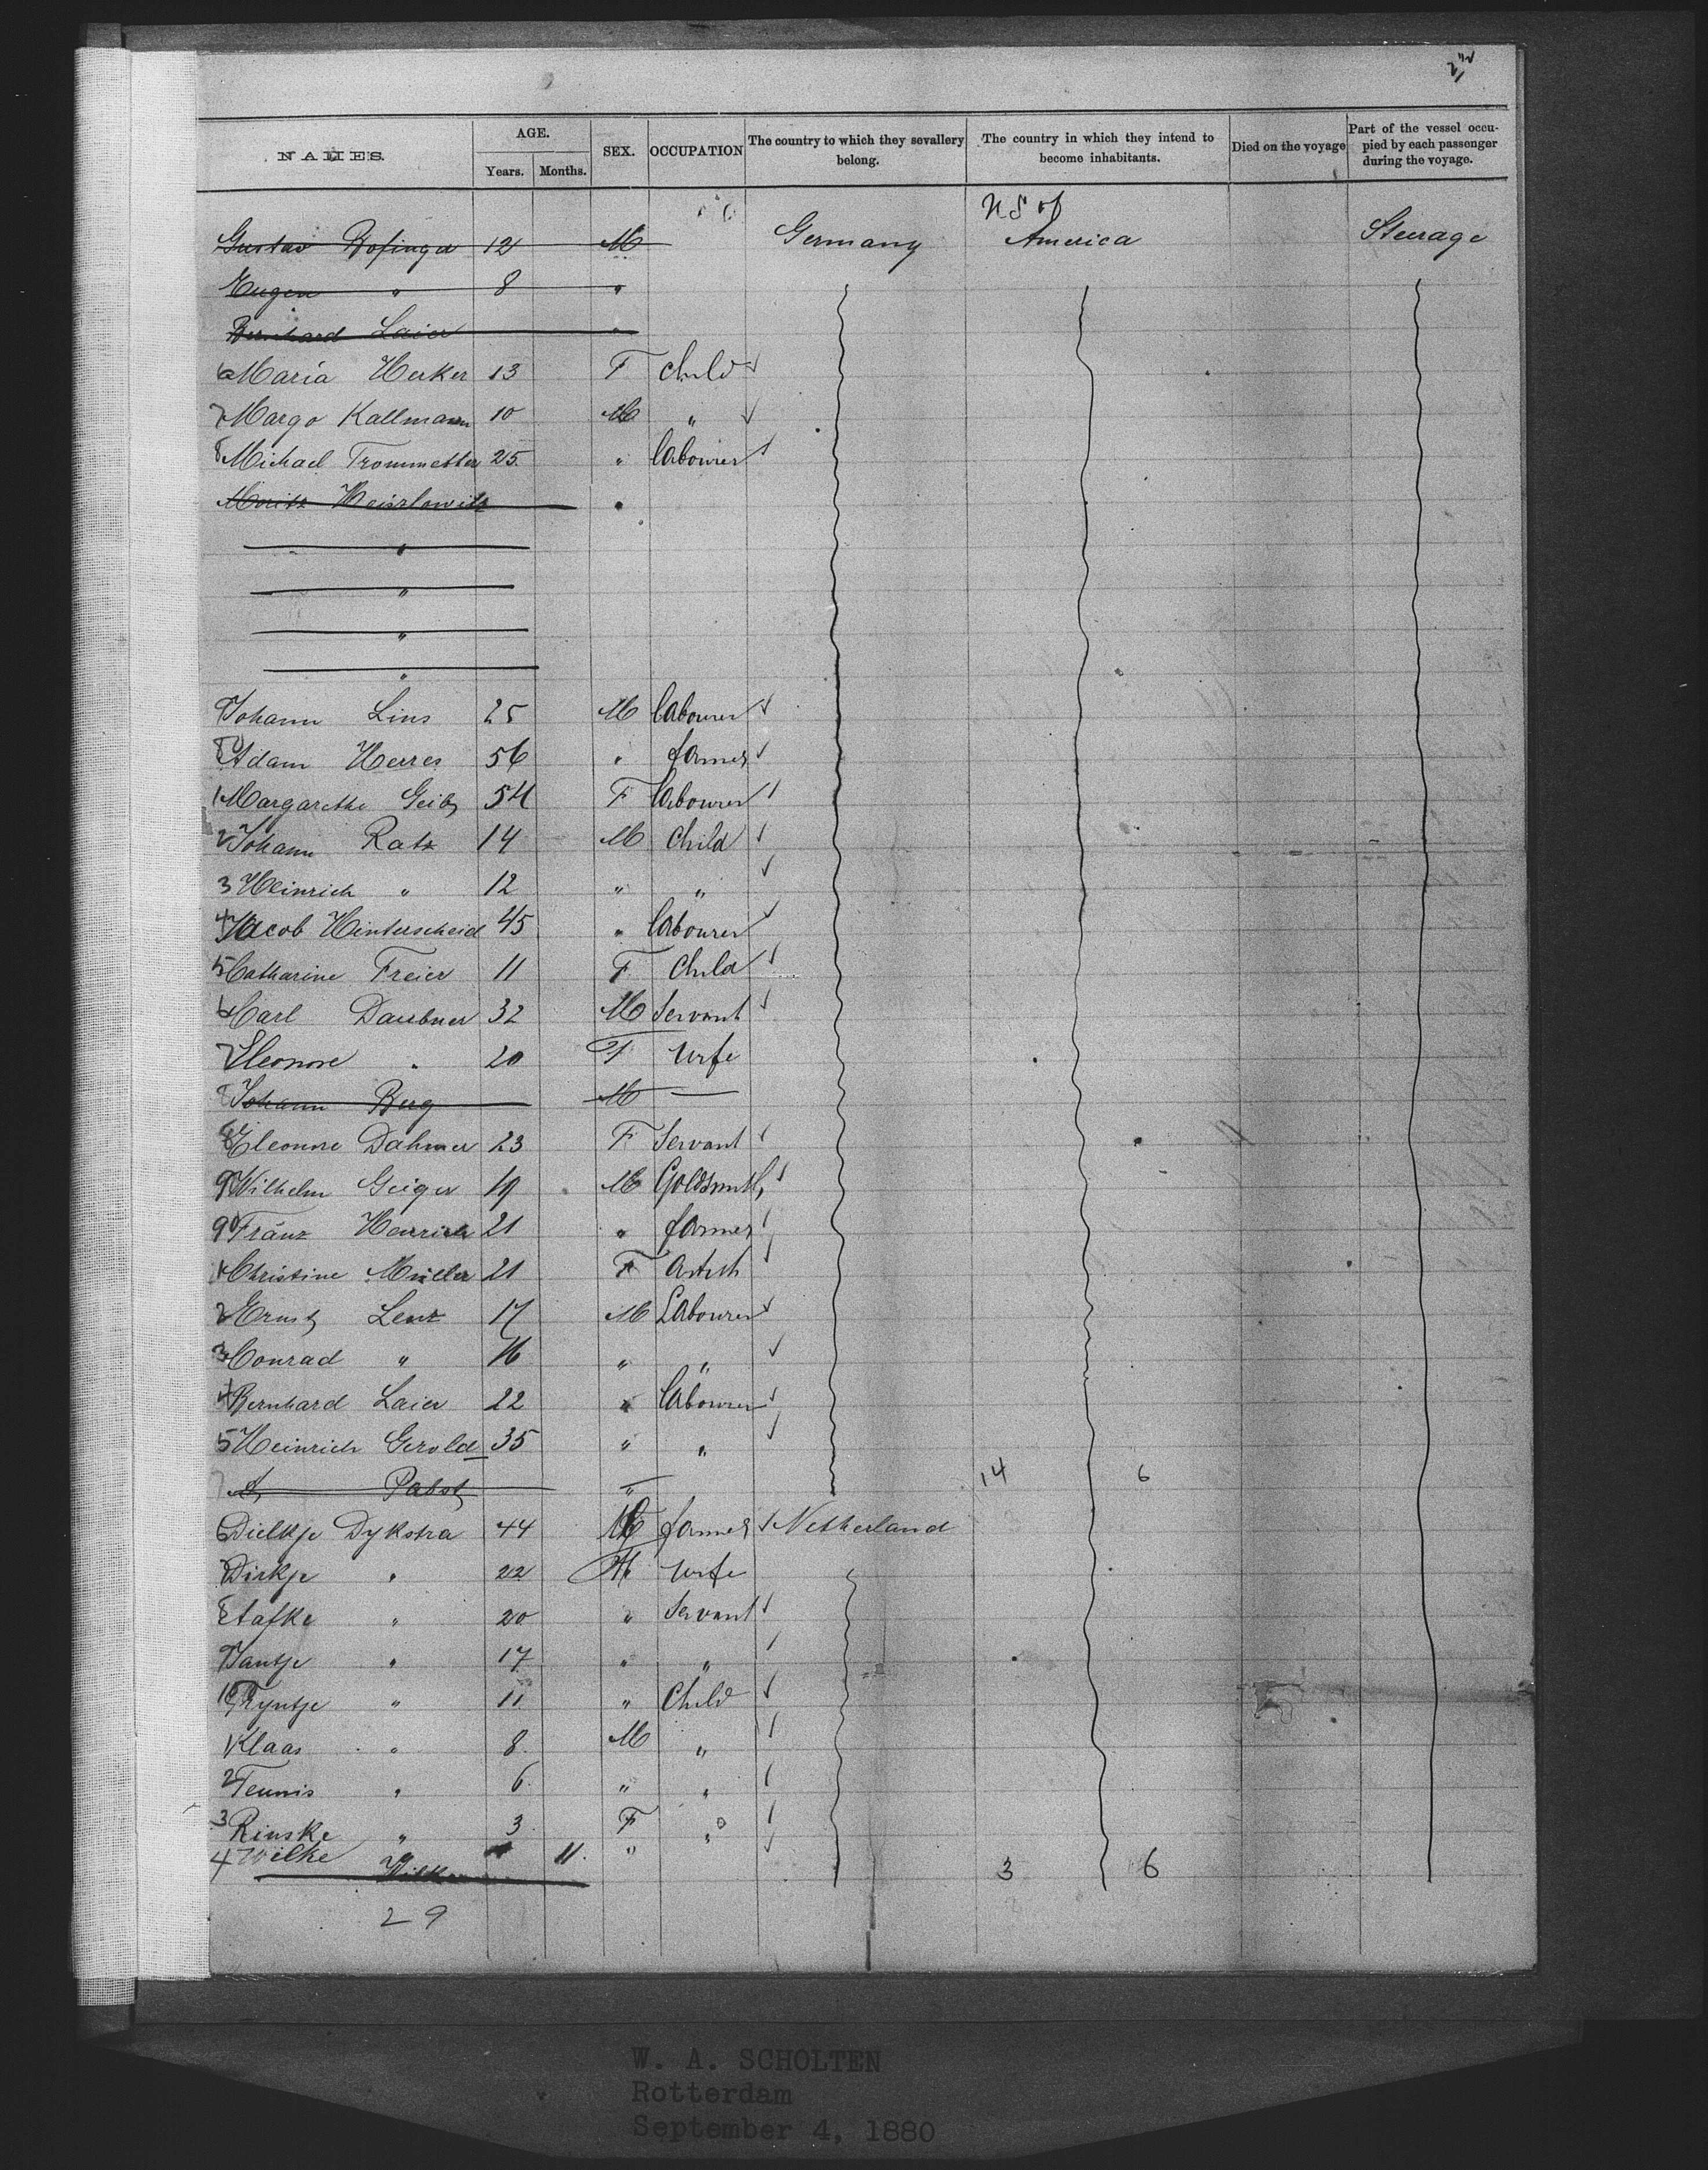 2
NAMES. AGE. Years. Months. SEX. OCCUPATION The country to which they severally belong. The country in which they intend to become inhabitants. Died on the voyage Part of the vessel occupied by each passenger during the voyage.
U S of
Gustav Bofinger 12 M Germany America Steerage
Eugen " 8 "
Bernhard Laier "
6 Maria Herker 13 F Child
7 Margo Kallmann 10 M "
8 Michael Trommetter 25 " labourer
Moritz "
"
"
"
"
9 Johann Lins 25 M labourer
80 Adam Herres 56 " farmer
1 Margarethe Geib 54 F labourer
2 Johann Ratz 14 M Child
3 Heinrich " 12 " "
4 Jacob Hinterscheid 45 " labourer
5 Catharine Freier 11 F Child
6 Carl Daubner 32 M Servant
7 Eleonore " 20 F wife
8 Johann Berg M —
8 Eleonore Dahmer 23 F Servant
9 Wilhelm Geiger 19 M Goldsmith
90 Franz 21 " farmer
1 Christine Müller 21 F Artist
2 Ernst Lenz 17 M Labourer
3 Conrad " 16 " "
4 Bernhard Laier 22 " labourer
5 Heinrich Gerold 35 " "
Pabst " 14 6
6 Dieltje Dykstra 44 farmer Netherland
7 Dirkje " 22 wife
8 Etafke " 20 " Servant
9 Jantje " 17 " "
100 Tryntje " 11 " Child
1 Klaas " 8 M "
2 Teunis " 6 " "
3 Rinske " 3 F "
4 Wilke " 11 "
3 6
29
W. A. SCHOLTEN
Rotterdam
September 4, 1880